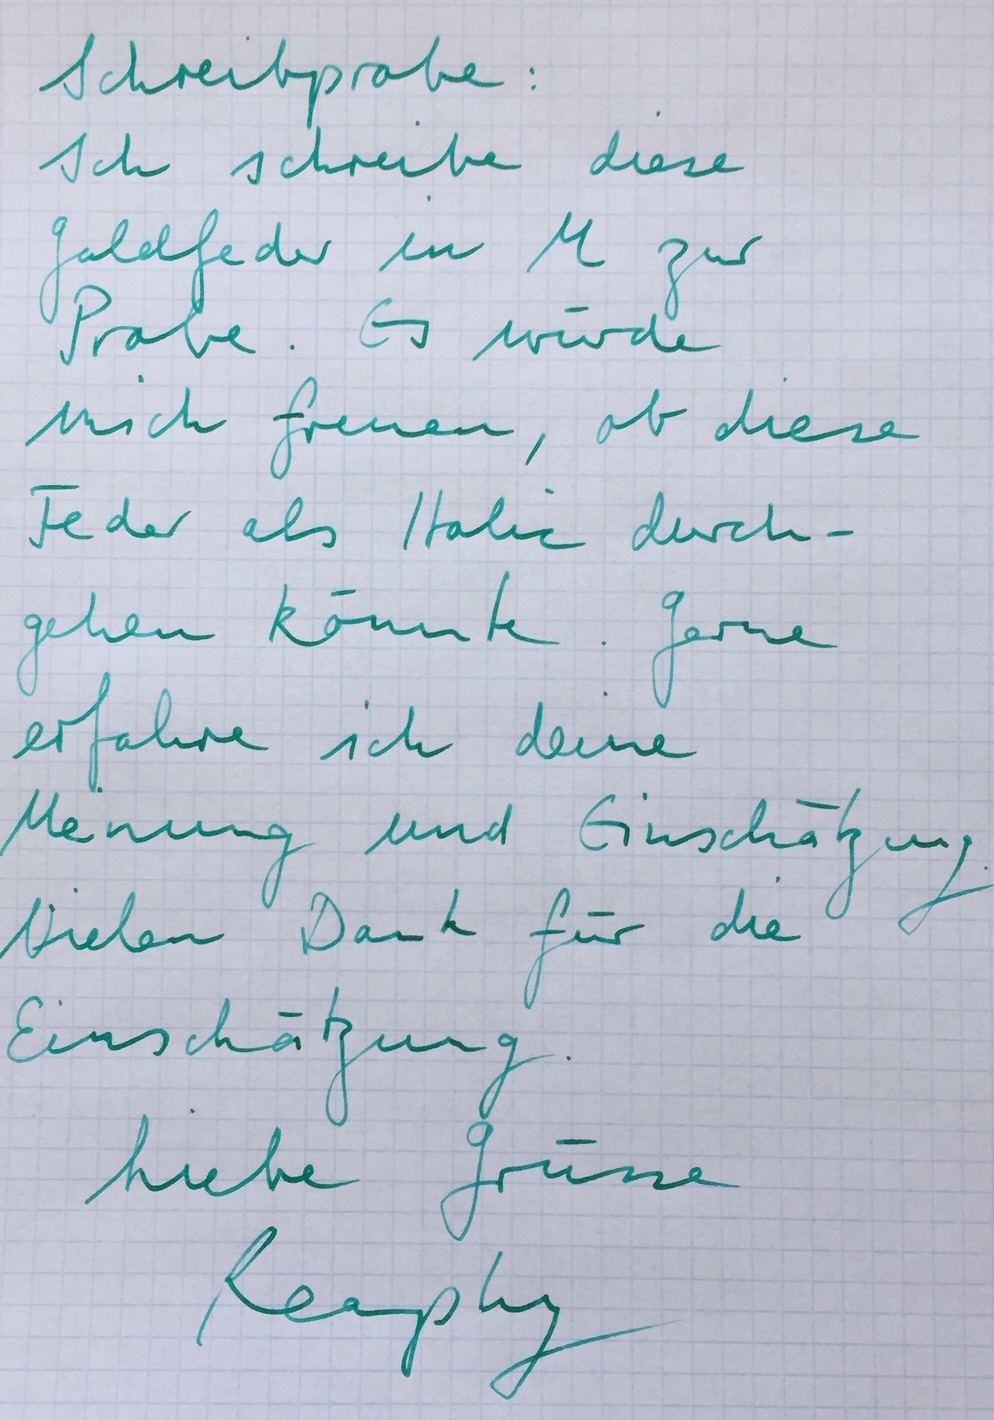 Schreibprobe:
Ich schreibe diese
Goldfeder in M zur
Probe. Es würde
mich freuen, ob diese
Feder als Italic durch-
gehen könnte. Gerne
erfahre ich deine
Meinung und Einschätzung.
Vielen Dank für die
Einschätzung.
Liebe Grüsse